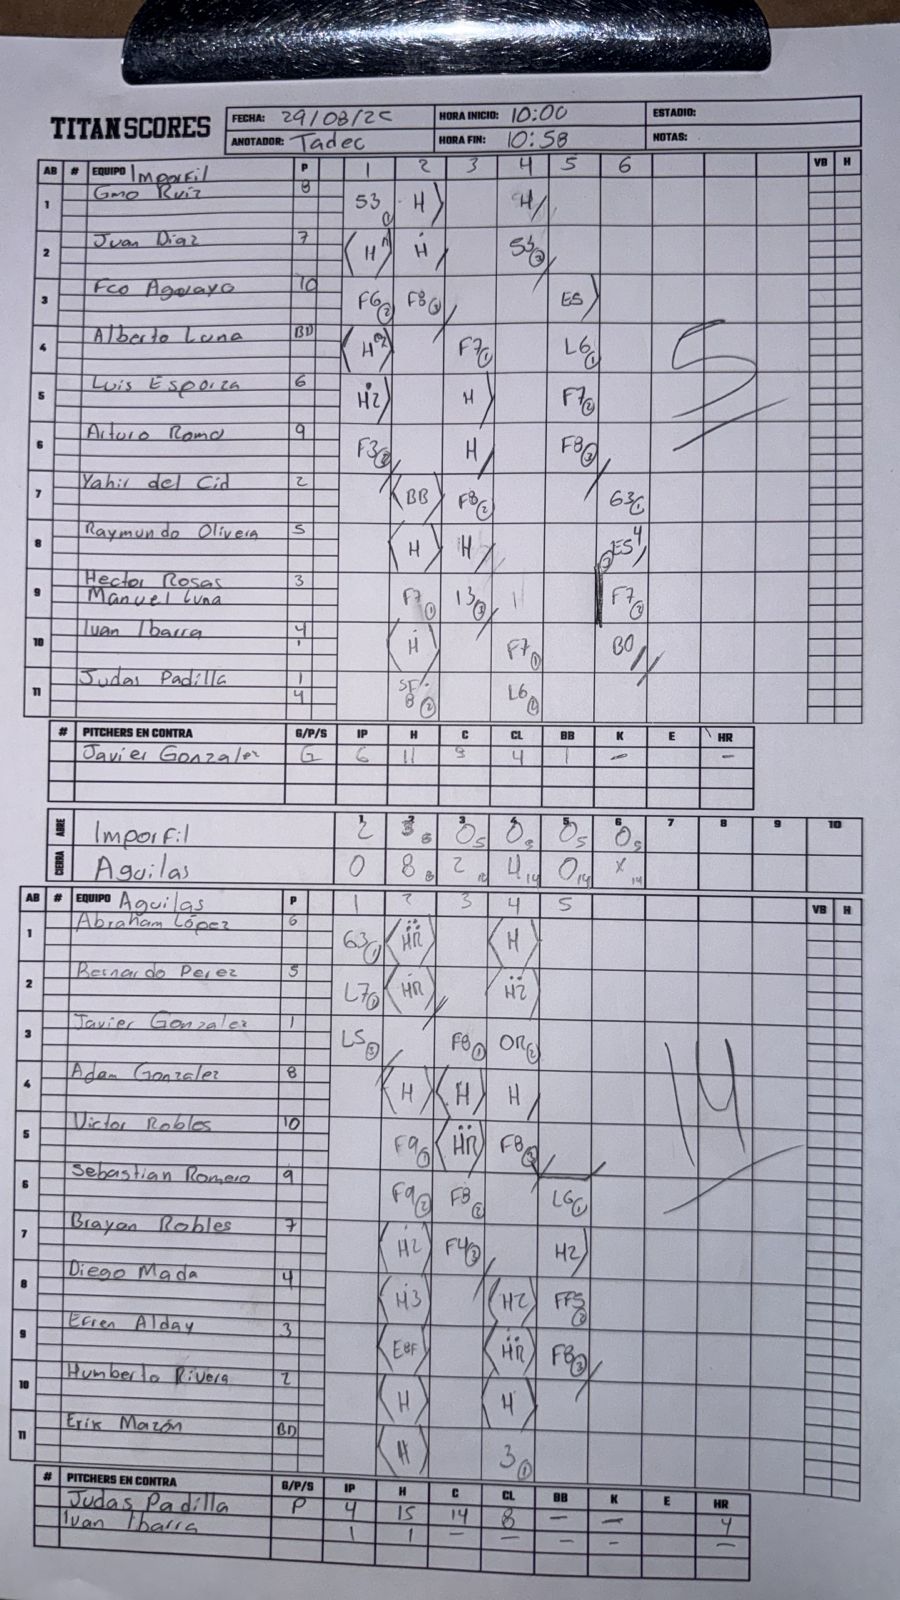 TITAN SCORES
FECHA: 29/08/25 HORA INICIO: 10:00 ESTADIO:
ANOTADOR: Tadec HORA FIN: 10:58 NOTAS:
AB # EQUIPO Imporfil P 1 2 3 4 5 6 VB H
1 Gmo Ruiz 8 53 1 H H
2 Juan Diaz 7 H H 53 3
3 Fco Aguayo 10 F6 2 F8 3 E5
4 Alberto Luna BD H F7 1 L6 1 5
5 Luis Esparza 6 H2 H F7 2
6 Arturo Romo 9 F3 H F8 3
7 Yahir del Cid 2 BB F8 2 63 1
8 Raymundo Olivera 5 H H E5 4
9 Hector Rosas 3 F7 1 13 3 F7
Manuel Luna
10 Ivan Ibarra 4 H F7 1 BO
11 Judas Padilla 1 SF 8 2 L6 2
4
# PITCHERS EN CONTRA G/P/S IP H C CL BB K E HR
Javier Gonzalez G 6 11 9 4 1 - -
ABRE Imporfil 1 2 3 4 5 6 7 8 9 10
2 3 0 5 0 5 0 5 0 5
CIERRA Aguilas 0 8 8 2 10 4 14 0 14 X 14
AB # EQUIPO Aguilas P 1 2 3 4 5 VB H
1 Abraham López 6 63 1 HR H
2 Bernardo Perez 5 L7 2 HR H2
3 Javier Gonzalez 1 L5 3 F8 1 OR 2
4 Adan Gonzalez 8 H H H 14
5 Victor Robles 10 F9 1 HR F8 3
6 Sebastian Romero 9 F9 2 F8 2 L6 1
7 Brayan Robles 7 H2 F4 3 H2
8 Diego Mada 4 H3 H2 FF5 2
9 Efren Alday 3 E8F HR F8 3
10 Humberto Rivera 2 H H
11 Erik Mazón BD H 3 1
# PITCHERS EN CONTRA G/P/S IP H C CL BB K E HR
Judas Padilla P 4 15 14 8 - - 4
Ivan Ibarra 1 1 - - - - -